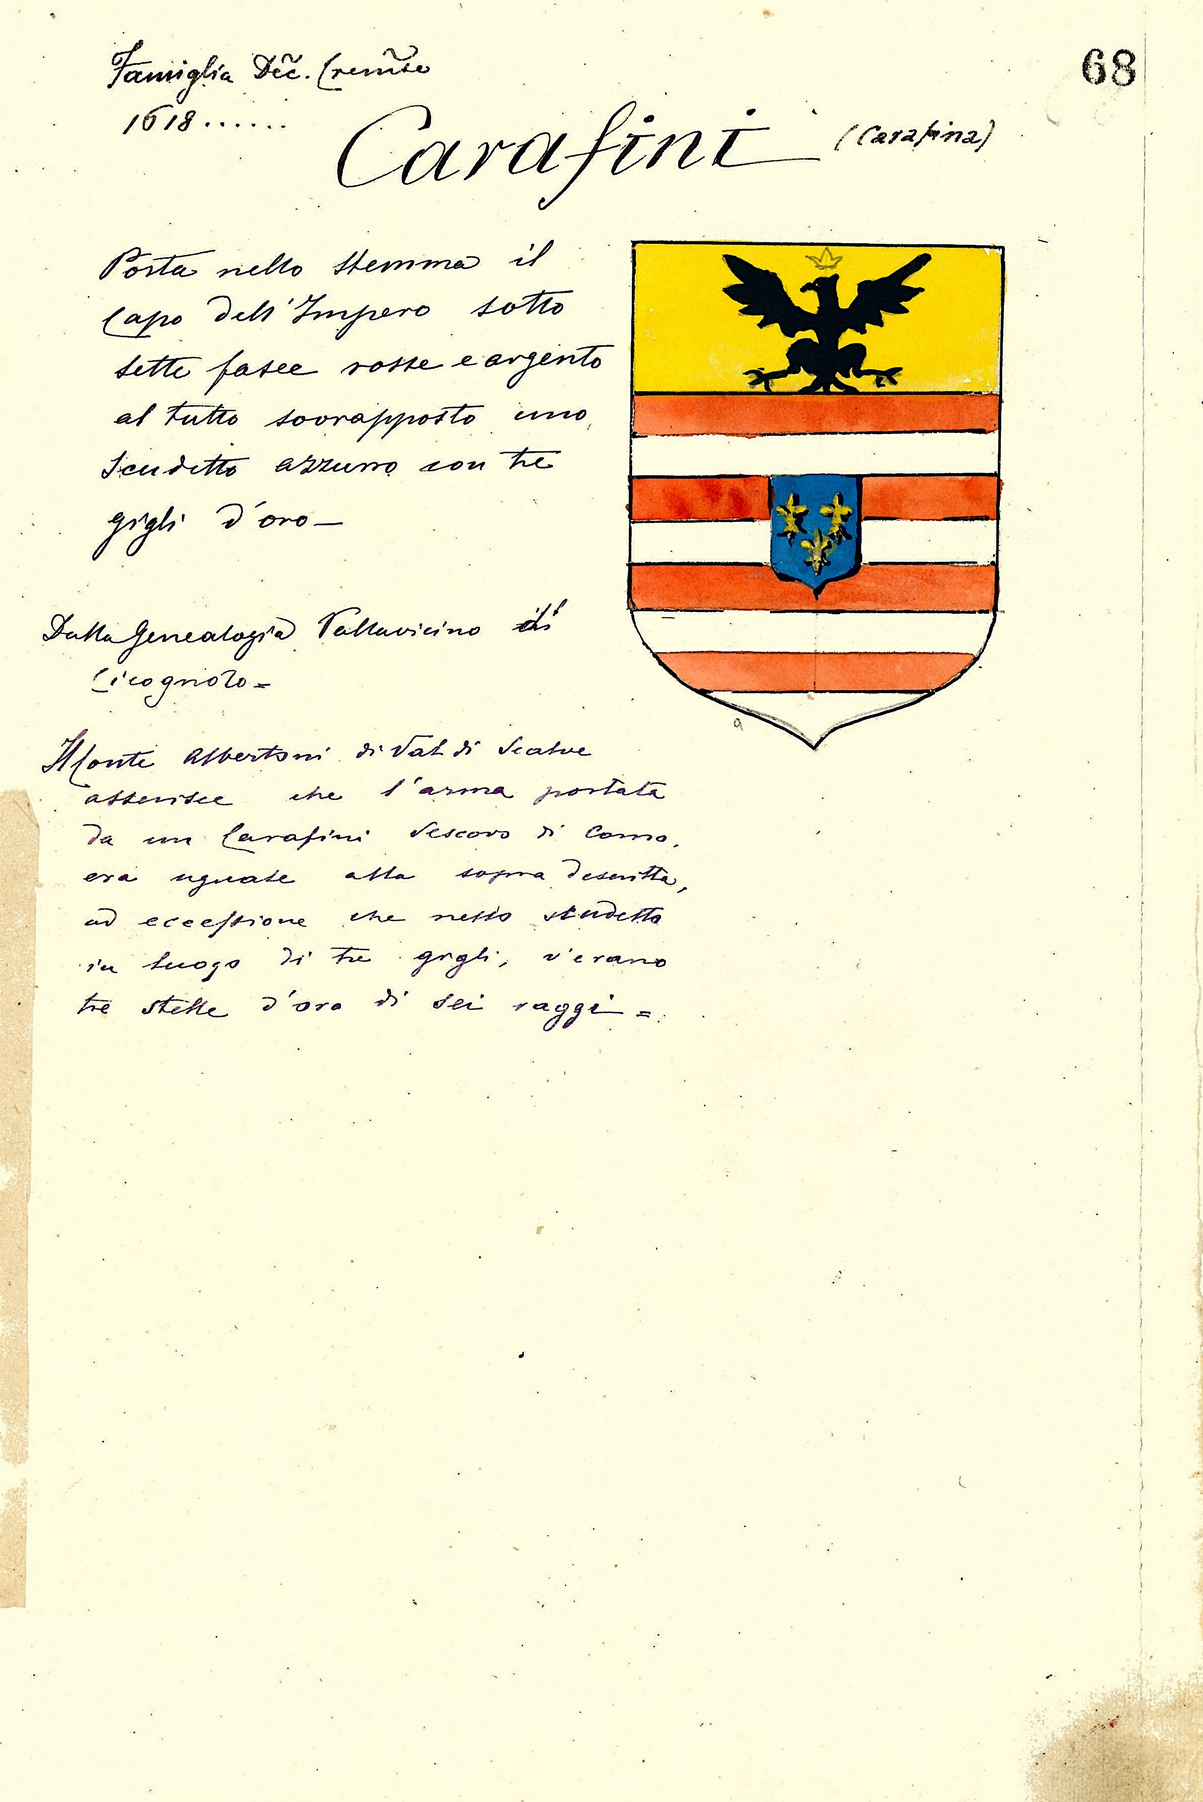 68
Famiglia Dec̃. Crem̃se
1618......
Carafini (Carafina)
Porta nello stemma il
Capo dell'Impero sotto
sette fasce rosse e argento
al tutto sovrapposto uno
scudetto azzurro con tre
gigli d'oro—
Dalla Genealogia Pallavicino di
Cicognolo=
Il Conte Albertoni di Val di Scalve
asserisce che l'arma portata
da un Carafini Vescovo di Como,
era uguale alla sopra descritta,
ad eccessione che nello scudetto
in luogo di tre gigli, v'erano
tre stelle d'oro di sei raggi=